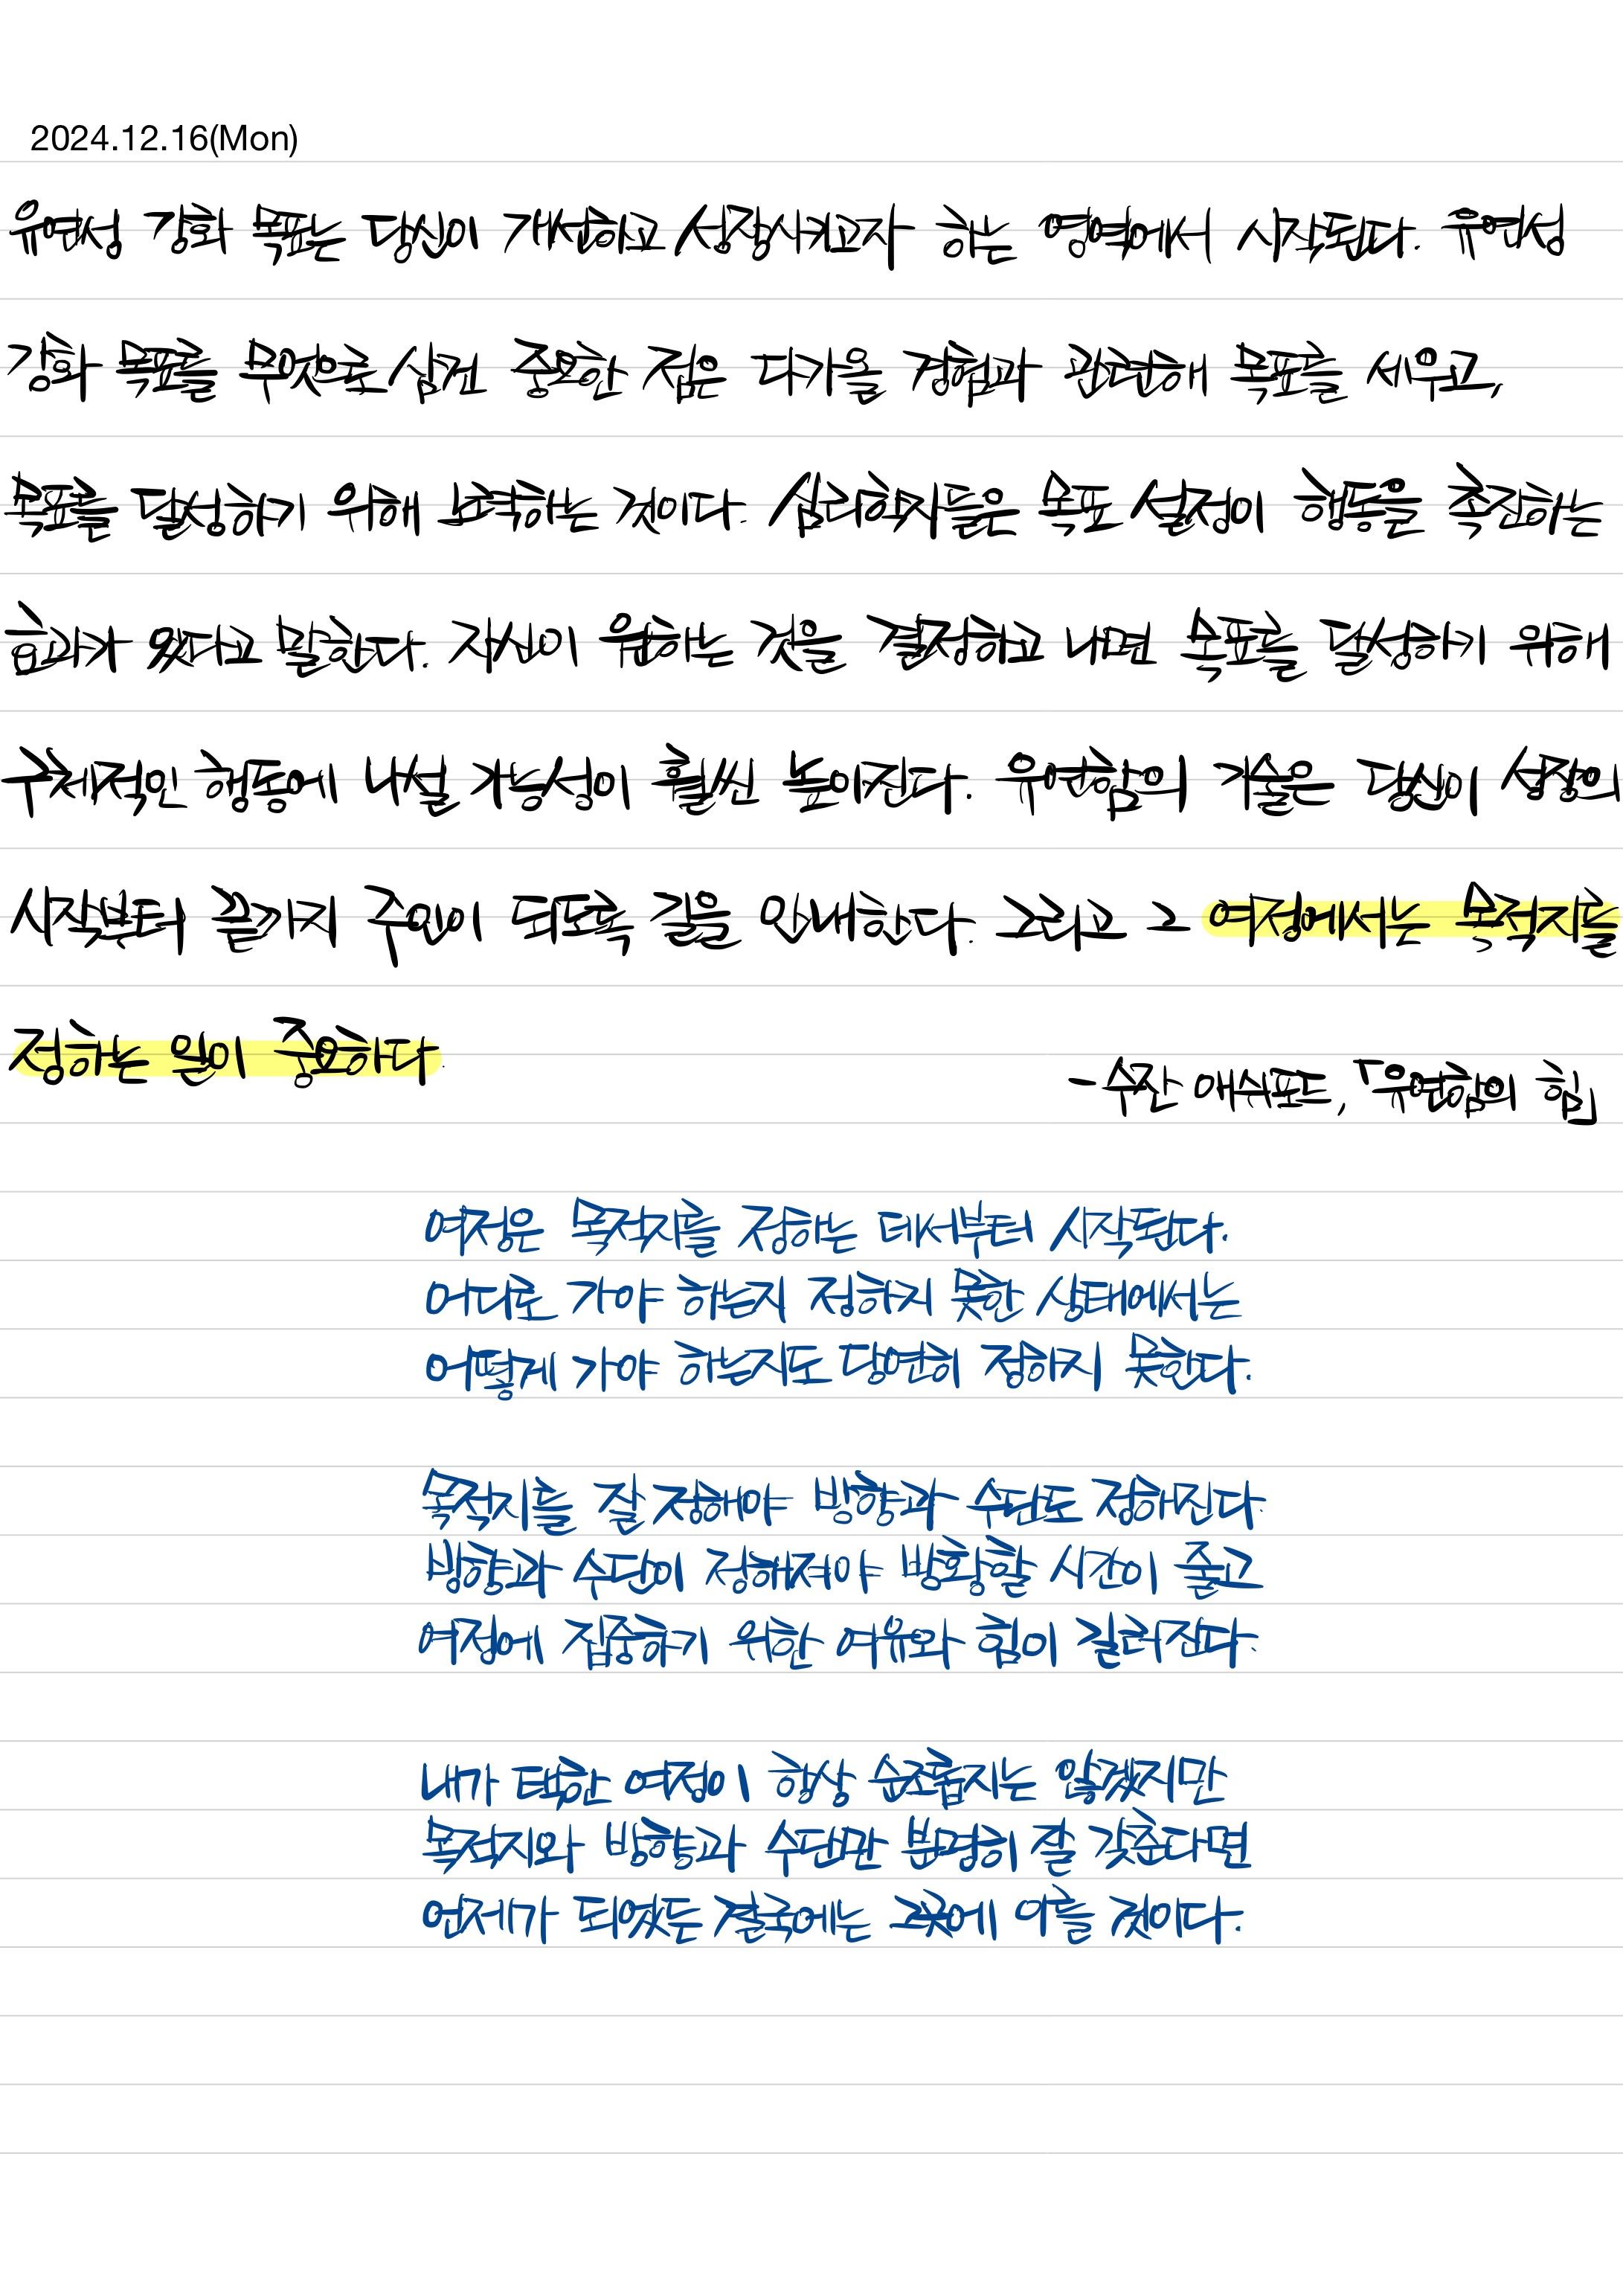 2024.12.16(Mon)
유연성 강화 목표는 당신이 개선하고 성장시키고자 하는 영역에서 시작된다. 유연성
강화 목표를 무엇으로 삼건 중요한 점은 다가올 경험과 관련해 목표를 세우고,
목표를 달성하기 위해 노력하는 것이다. 심리학자들은 목표 설정이 행동을 촉진하는
효과가 있다고 말한다. 자신이 원하는 것을 결정하고 나면 목표를 달성하기 위해
구체적인 행동에 나설 가능성이 훨씬 높아진다. 유연함의 기술은 당신이 성장의
시작부터 끝까지 주인이 되도록 길을 안내한다. 그리고 그 여정에서는 목적지를
정하는 일이 중요하다.
-수잔 애쉬포드, 「유연함의 힘」
여정은 목적지를 정하는 데서부터 시작된다.
어디로 가야 하는지 정하지 못한 상태에서는
어떻게 가야 하는지도 당연히 정하지 못한다.
목적지를 잘 정해야 방향과 수단도 정해진다.
방향과 수단이 정해져야 방황할 시간이 줄고
여정에 집중하기 위한 여유와 힘이 길러진다.
내가 택한 여정이 항상 순조롭지는 않겠지만
목적지와 방향과 수단만 분명히 잘 갖춘다면
언제가 되었든 결국에는 그곳에 이를 것이다.